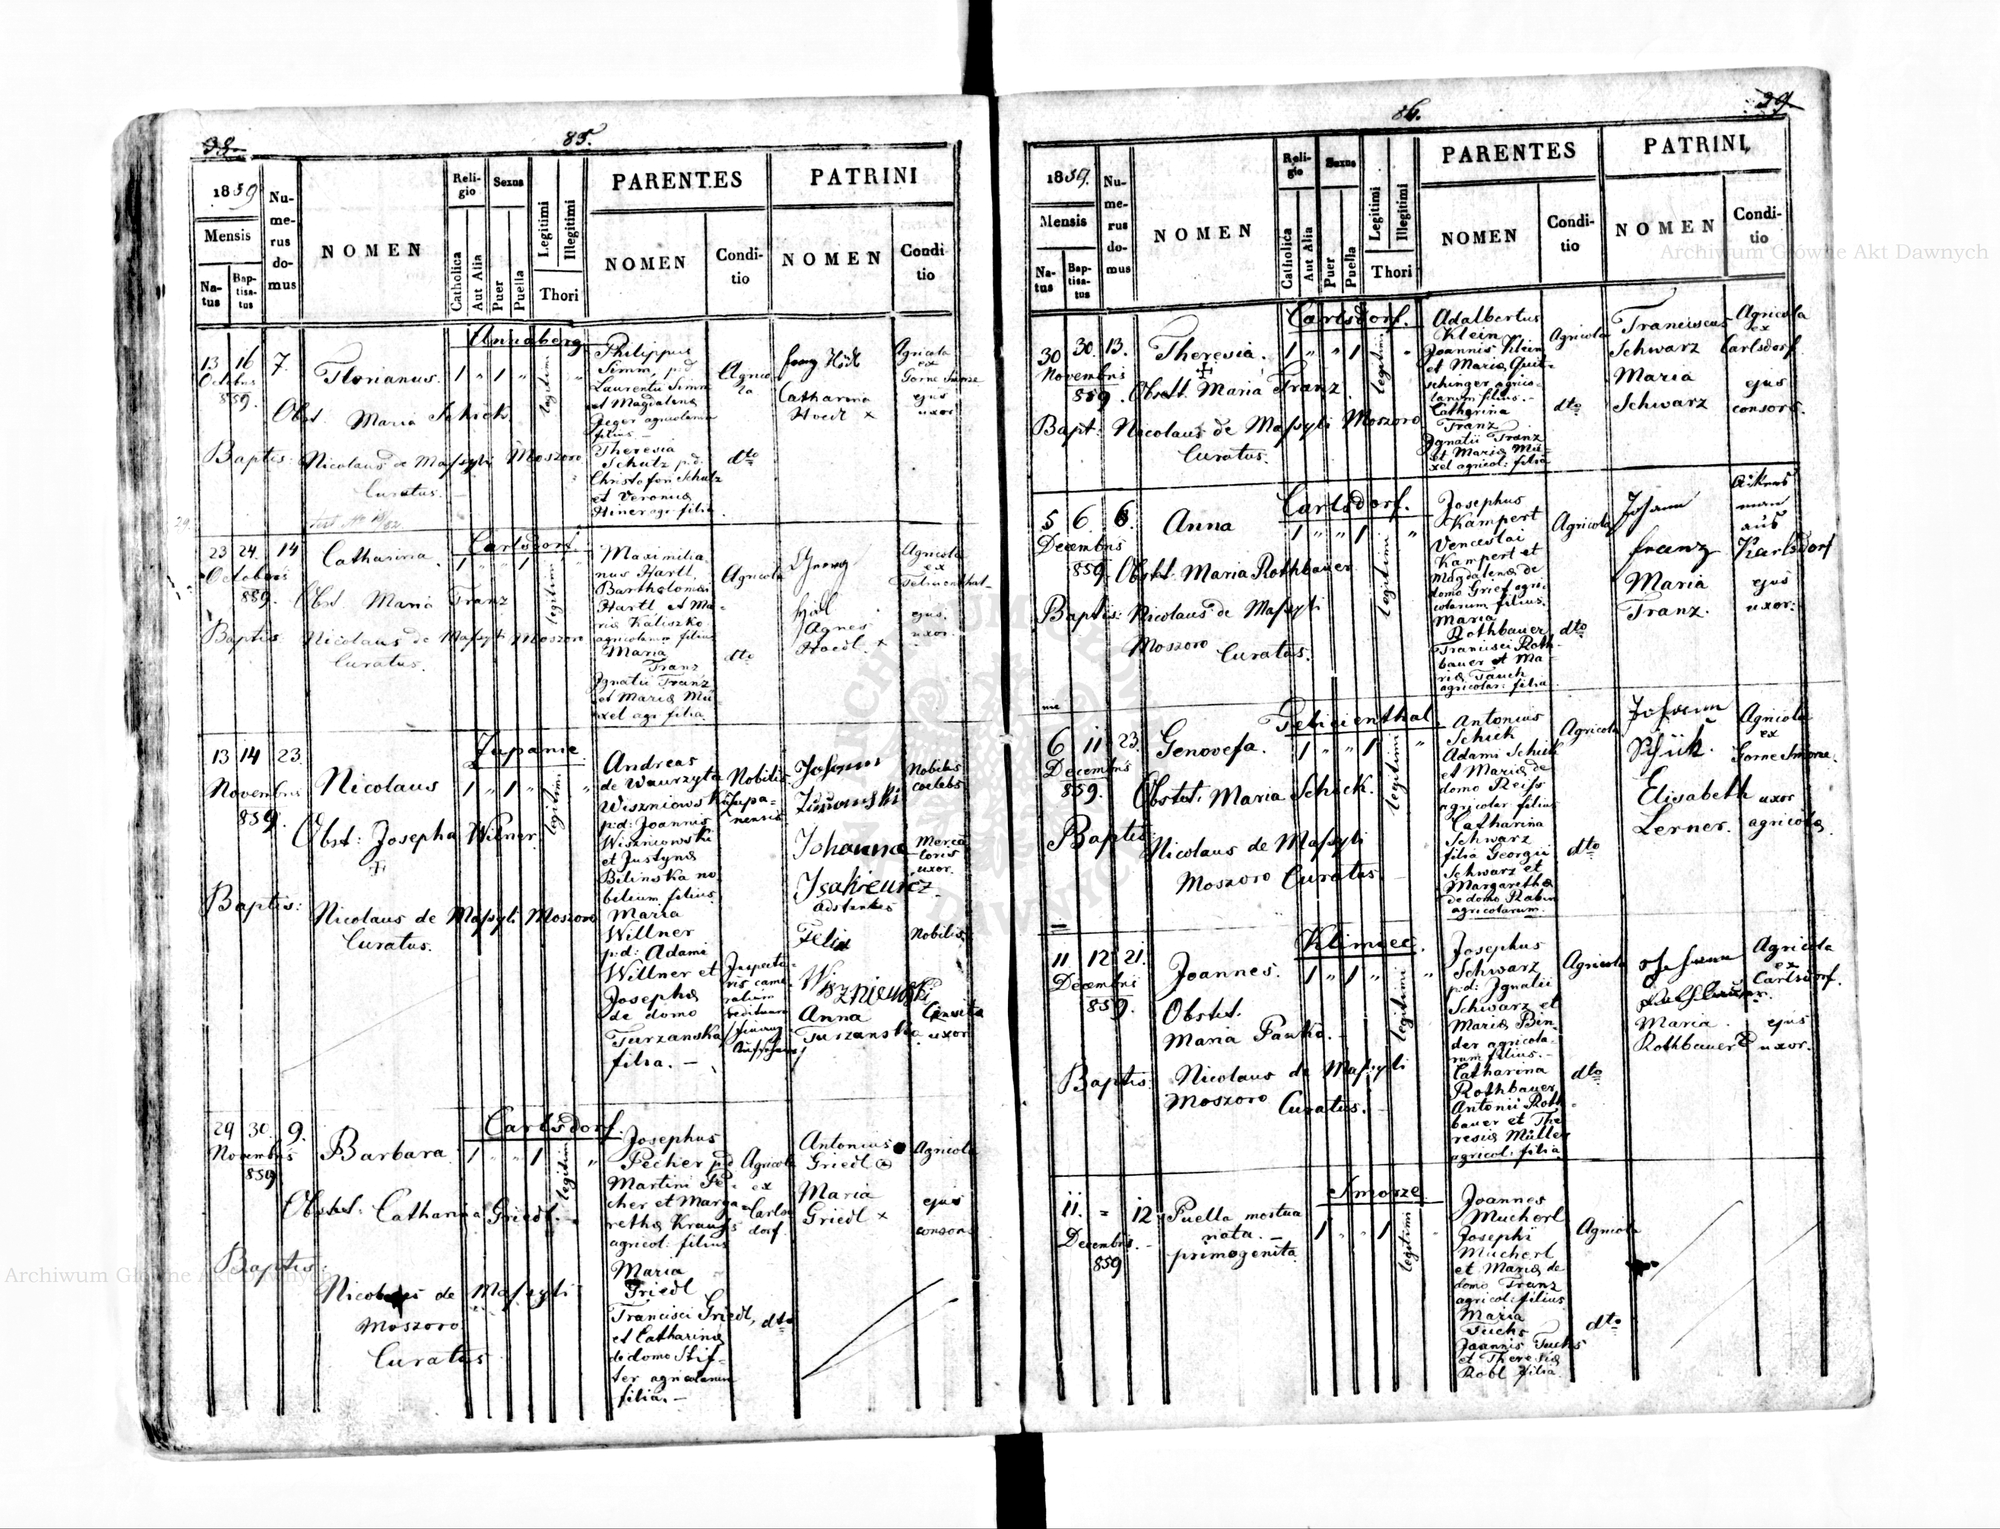 38.
85.
1859
Mensis
Na-
tus
Bap-
tisa-
tus
Nu-
me-
rus
do-
mus
NOMEN
Reli-
gio
Catholica
Aut Alia
Sexus
Puer
Puella
Legitimi
Illegitimi
Thori
PARENTES
NOMEN
Condi-
tio
PATRINI
NOMEN
Condi-
tio
Annaberg
13 16 7.
Octobris
859.
Florianus. 1 " 1 "
legitimi
Obst. Maria Schick
Baptis: Nicolaus de Massyli Moszoro
Curatus.
Philippus
Simm, p:d
Laurentii Simm
et Magdalena
Jeger agricolarum
filius —
Theresia
Schutz p:d.
Christofori Schutz
et Veronica
filia.
Agrico
la
dto
Catharina
Hoedl x
Agricola
ex
Gorne Smorze
ejus
uxor
Carlsdorf.
23 24. 14
Octobris
859.
Catharina. 1 " " 1 "
legitimi
Obst. Maria Franz
Baptis: Nicolaus de Massyli Moszoro
Curatus.
Maximilia
nus Hartl
Bartholomaei
Hartl et Ma-
ria Kaliszko
agricolarum filius
Maria
Franz
Ignatii Franz
et Maria Mü-
xel agr. filia
Agricola
dto
Georg
Agnes
Hoedl. x
Agricola
ex
Felicienthal
ejus.
uxor.
Zupanie
13 14 23.
Novembris
859.
Nicolaus 1 " 1 " "
legitimi
Obst: Josepha Wilner.
Baptis: Nicolaus de Massyli Moszoro
Curatus.
Andreas
de Wawrzyta
Wiszniowski
p:d: Joannis
Wiszniowski
et Justyna
Bilinska no
bilium filius
Maria
Willner
p:d: Adami
Willner et
Josepha
de domo
Turzanska
filia. —
Nobilis
Zupa-
nensis
Johann
Zurowski
Johanna
Isakiewicz
adstantes
Felix
Wiszniewski
Anna
Turzanska
Nobilis
coelebs
Merca
toris
uxor.
Nobilis
uxor
Carlsdorf.
29 30. 9.
Novembris
859
Barbara. 1 " " 1 "
legitimi
Obstet: Catharina Griedl.
Baptis:
Nicolaus de Massyli
Moszoro
Curatus
Josephus
Pecher p:d
Martini Pe-
cher et Marga-
retha Krauss
agricol: filius
Maria
Griedl
Francisci Griedl,
et Catharina
de domo Stif-
ter agricolarum
filia. —
Agricola
ex
Carls
dorf.
dto
Antonius
Griedl
Maria
Griedl x
Agricola
ejus
consors
86.
39
1859.
Mensis
Na-
tus
Bap-
tisa-
tus
Nu-
me-
rus
do-
mus
NOMEN
Reli-
gio
Catholica
Aut Alia
Sexus
Puer
Puella
Legitimi
Illegitimi
Thori
PARENTES
NOMEN
Condi-
tio
PATRINI,
NOMEN
Condi-
tio
Carlsdorf.
30 30. 13.
Novembris
859.
Theresia. 1 " " 1 "
legitimi
Obstt. Maria Franz.
Bapt: Nicolaus de Massyli Moszoro
Curatus.
Adalbertus
Klein
Joannis Klein
et Maria Quit-
schinger agrico-
larum filius. —
Catharina
Franz
Ignatii Franz
et Maria Mü-
xel agricol: filia
Agricola
dto
Franciscus
Schwarz
Maria
Schwarz
Agricola
ex
Carlsdorf
ejus
consors.
Carlsdorf.
5 6. 6.
Decembris
859.
Anna 1 " " 1 "
legitimi
Obstet. Maria Rothbauer.
Baptis: Nicolaus de Massyli
Moszoro
Curatus.
Josephus
Kampert
Venceslai
Kampert et
Magdalena de
domo Grief agri-
colarum filius.
Maria
Rothbauer
Francisci Roth-
bauer et Ma-
ria Tauch
agricolar: filia
Agricola
dto
Johann
Franz
Maria
Franz.
Akers
man
aus
Karlsdorf
ejus
uxor.
Felicienthal.
6 11. 23.
Decembris
859.
Genovefa. 1 " " 1 "
legitimi
Obstet: Maria Schick.
Baptis:
Nicolaus de Massyli
Moszoro Curatus
Antonius
Schick
Adami Schick
et Maria de
domo Reiss
agricolar filius
Catharina
Schwarz
filia Georgii
Schwarz et
Margaretha
de domo Rabin
agricolarum.
Agricola
dto
Johann
Schük.
Elisabeth
Lerner.
Agricola
ex
Gorne Smorze.
uxor
agricola.
Klimiec.
11 12 21.
Decembris
859.
Joannes. 1 " 1 " "
legitimi
Obstet.
Maria Pautka.
Baptis: Nicolaus de Massyli
Moszoro
Curatus.
Josephus
Schwarz
p:d: Ignatii
Schwarz et
Maria Bin-
der agricola-
rum filius. —
Catharina
Rothbauer
Antonii Roth-
bauer et The
resia Müller
agricol: filia
Agricola
dto
Johann
Rothbauer.
Maria
Rothbauer
Agricola
ex
Carlsdorf.
ejus
uxor.
Smorze
11. = 12
Decembris. —
859
Puella mortua
nata. —
primogenita.
1 " " 1
legitimi
Joannes
Mucherl
Josephi
Mucherl
et Maria de
domo Franz
agricol: filius
Maria
Fuchs
Joannis Fuchs
et Theresia
Robl filia
Agricola
dto
Archiwum Główne Akt Dawnych
Archiwum Główne Akt Dawnych